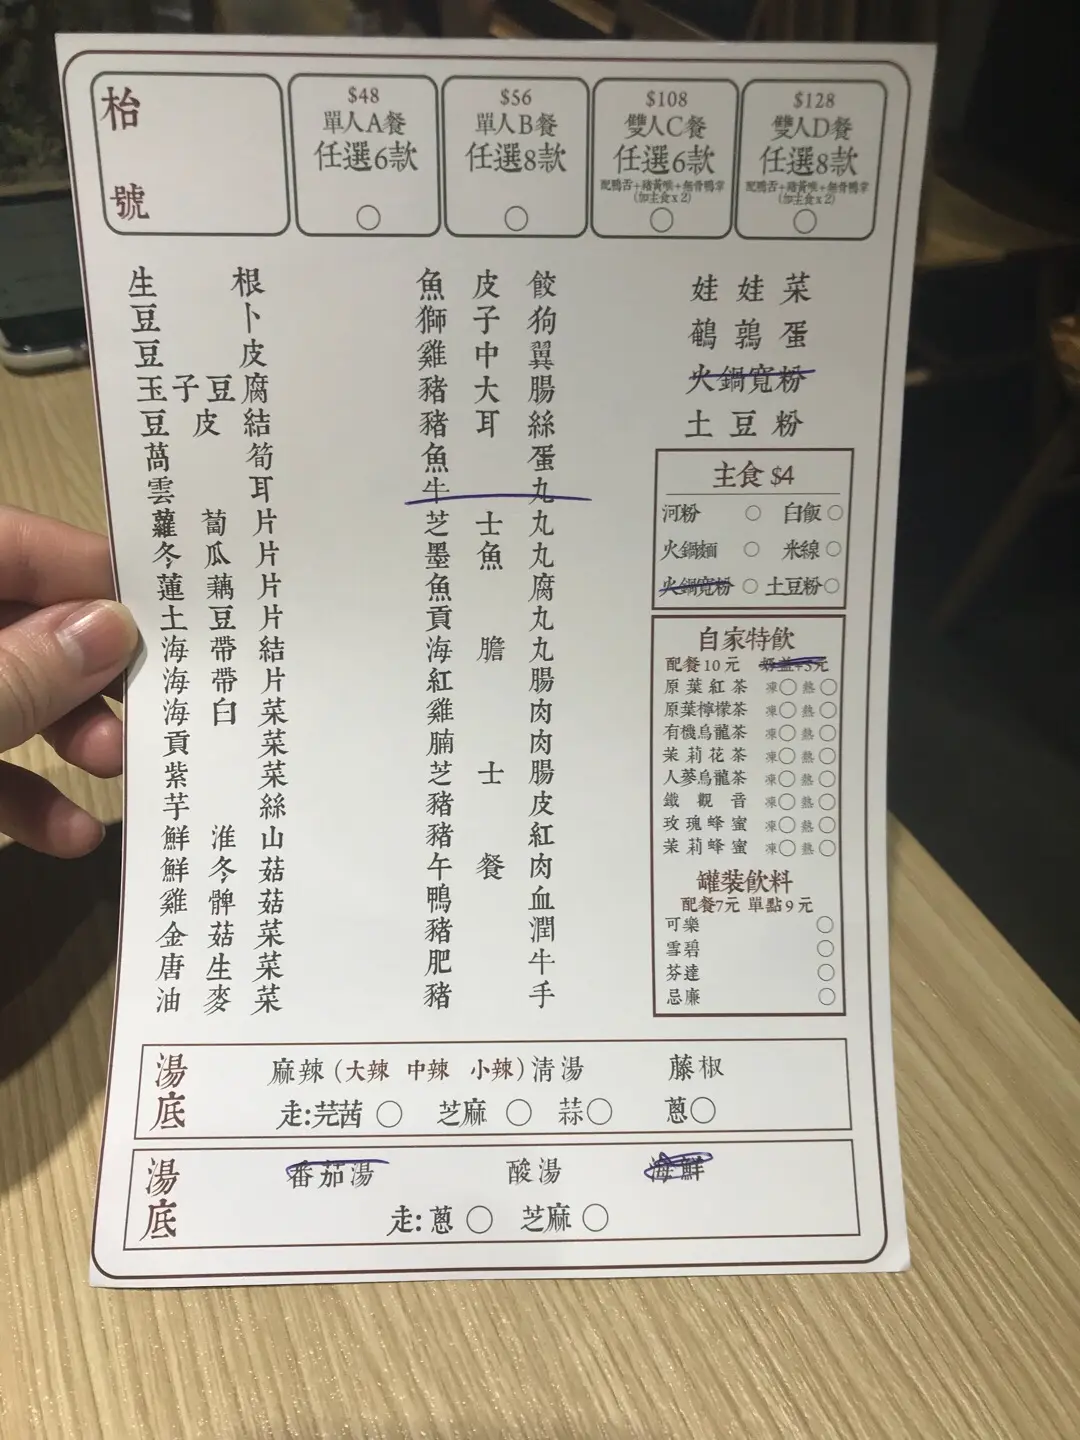 枱號
$48
單人A餐
任選6款
$56
單人B餐
任選8款
$108
雙人C餐
任選6款
配鴨舌+豬黃喉+無骨鴨掌
(加主食x2)
$128
雙人D餐
任選8款
配鴨舌+豬黃喉+無骨鴨掌
(加主食x2)
生根
豆卜
豆皮
玉子豆腐
豆皮結
萵筍
雲耳
蘿蔔片
冬瓜片
蓮藕片
土豆片
海帶結
海帶片
海白菜
貢菜
紫菜
芋絲
鮮淮山
鮮冬菇
雞髀菇
金菇菜
唐生菜
油麥菜
魚皮餃
獅子狗
雞中翼
豬大腸
豬耳絲
魚蛋
牛丸
芝士丸
墨魚丸
魚腐
貢丸
海膽丸
紅腸
雞肉
腩肉
芝士腸
豬皮
豬紅
午餐肉
鴨血
豬潤
肥牛
豬手
娃娃菜
鵪鶉蛋
火鍋寬粉
土豆粉
主食 $4
河粉 白飯
火鍋麵 米線
火鍋寬粉 土豆粉
自家特飲
配餐10元 奶蓋+5元
原葉紅茶 凍 熱
原葉檸檬茶 凍 熱
有機烏龍茶 凍 熱
茉莉花茶 凍 熱
人蔘烏龍茶 凍 熱
鐵觀音 凍 熱
玫瑰蜂蜜 凍 熱
茉莉蜂蜜 凍 熱
罐裝飲料
配餐7元 單點9元
可樂
雪碧
芬達
忌廉
湯底
麻辣(大辣 中辣 小辣) 清湯 藤椒
走:芫茜 芝麻 蒜 蔥
湯底
番茄湯 酸湯 海鮮
走:蔥 芝麻